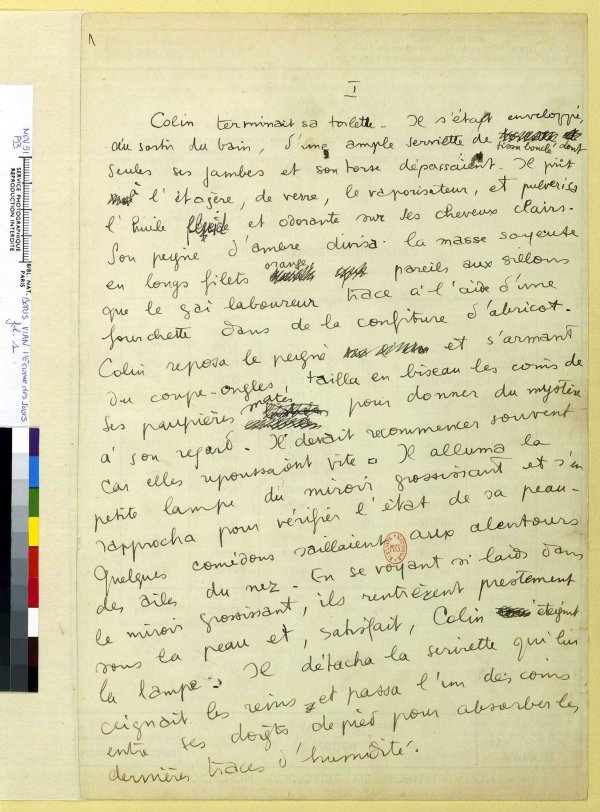 1
I
Colin terminait sa toilette. Il s'était enveloppé,
au sortir du bain, d'une ample serviette de
tissu bouclé dont
seules ses jambes et son torse dépassaient. Il prit
à l'étagère, de verre, le vaporisateur, et pulvérisa
l'huile fluide et odorante sur les cheveux clairs.
Son peigne d'ambre divisa la masse soyeuse
en longs filets orange pareils aux sillons
que le gai laboureur trace à l'aide d'une
fourchette dans de la confiture d'abricot.
Colin reposa le peigne et s'armant
du coupe-ongles, tailla en biseau les coins de
ses paupières mates pour donner du mystère
à son regard. Il devait recommencer souvent
car elles repoussaient vite. Il alluma la
petite lampe du miroir grossissant et s'en
rapprocha pour vérifier l'état de sa peau.
Quelques comédons saillaient aux alentours
des ailes du nez. En se voyant si laids dans
le miroir grossissant, ils rentrèrent prestement
sous la peau et, satisfait, Colin éteignit
la lampe. Il détacha la serviette qui lui
ceignait les reins et passa l'un des coins
entre ses doigts de pied pour absorber les
dernières traces d'humidité.
NOV 91
SERVICE PHOTOGRAPHIQUE
REPRODUCTION INTERDITE
BIBL. NAT.
PARIS
BORIS VIAN l'Ecume des Jours